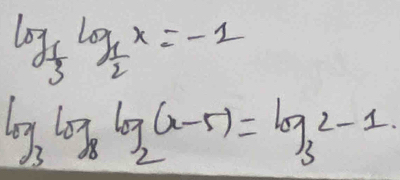 log_{1/3} log_{1/2} x = -1
log_3 log_8 log_2 (x-5) = log_3 2 - 1.